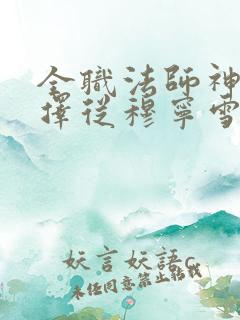 全職法師神
擇從穆寧雪
妖言妖語c
未經同意禁止轉載